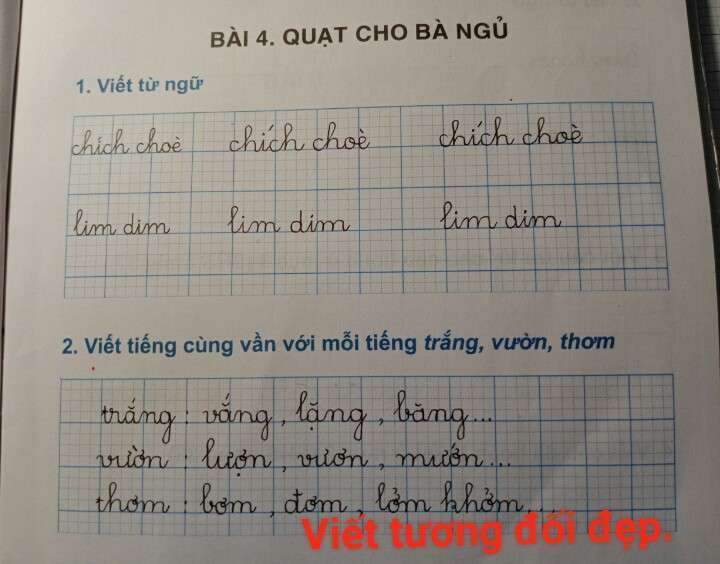 BÀI 4. QUẠT CHO BÀ NGỦ
1. Viết từ ngữ
chích choè chích choè chích choè
lim dim lim dim lim dim
2. Viết tiếng cùng vần với mỗi tiếng trắng, vườn, thơm
trắng : vắng, lặng, băng...
vườn : lượn, vươn, mướn...
thơm : bơm, đơm, lởm khởm...
Viết tương đối đẹp.